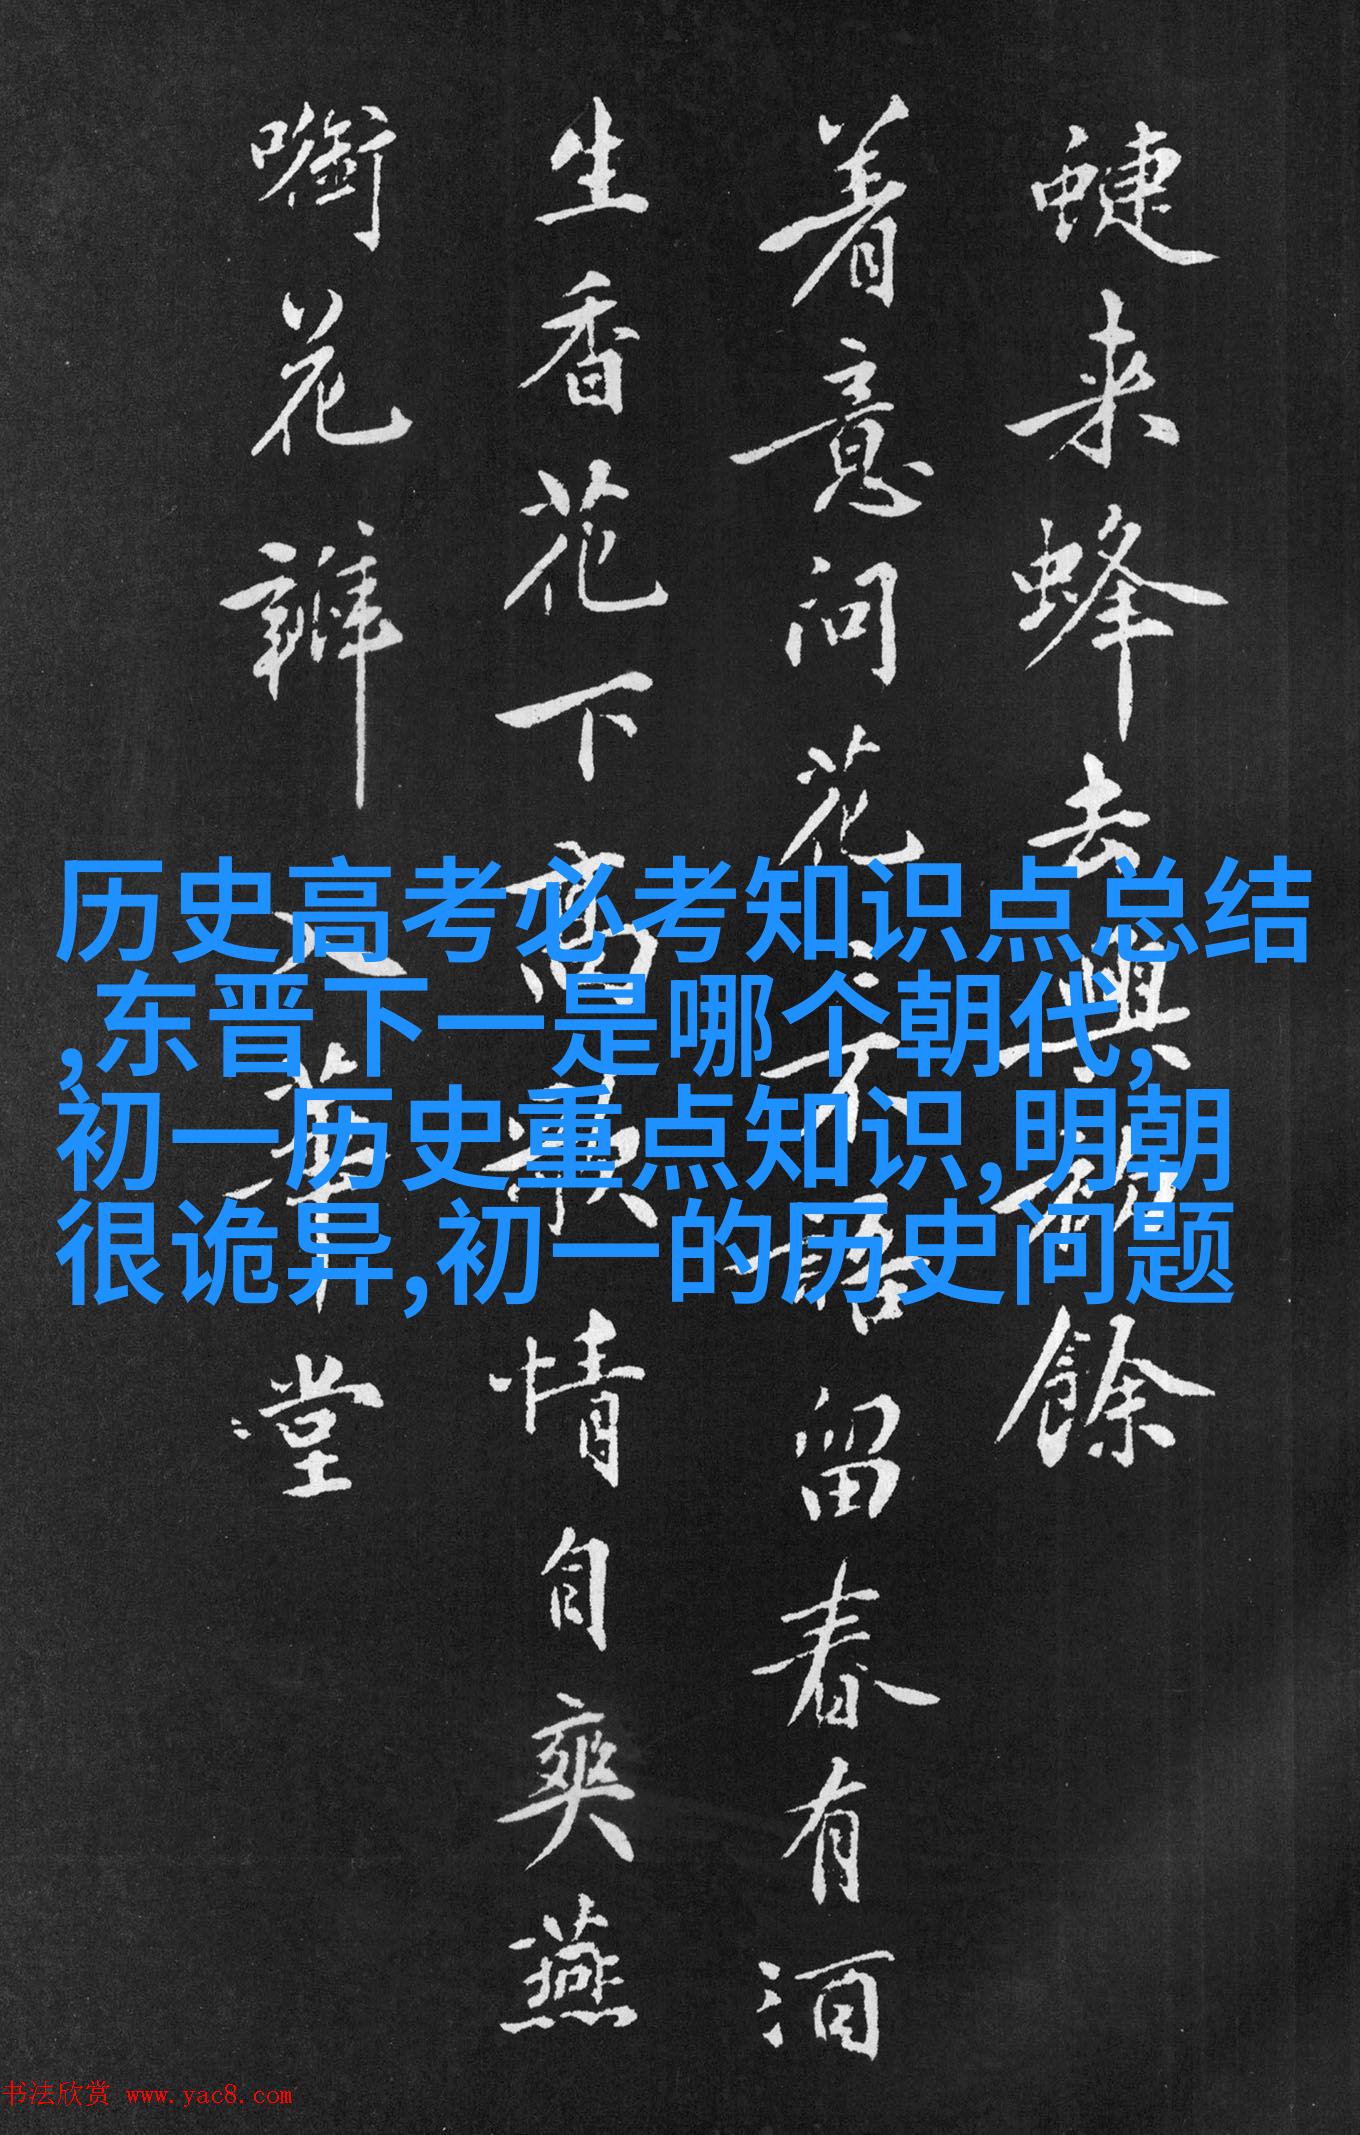 历史高考必考知识点总结
,东晋下一是哪个朝代,
初一历史重点知识,明朝
很诡异,初一的历史问题
来蜂去興餘
着意问花不語留春有酒
生香花下高歌情自爽燕
花瓣入華堂
书法欣赏 www.yac8.com